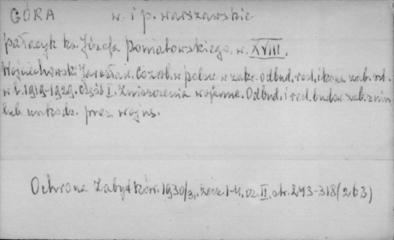 GÓRA w. i p. warszawskie
pałacyk ks. Józefa Poniatowskiego, w. XVIII.
Wojciechowski Jarosław. Co zrob. w polsce w zakr. odbud. rest. i kons. zab. szt.
w l. 1919-1929. Część I. Zniszczenia wojenne. Odbud. i rest. budow. zab. znin
lub uszkodz. przez wojnę.
Ochrona Zabytków. 1930/31, zesz 1-4, cz II, str. 243-318 (263)